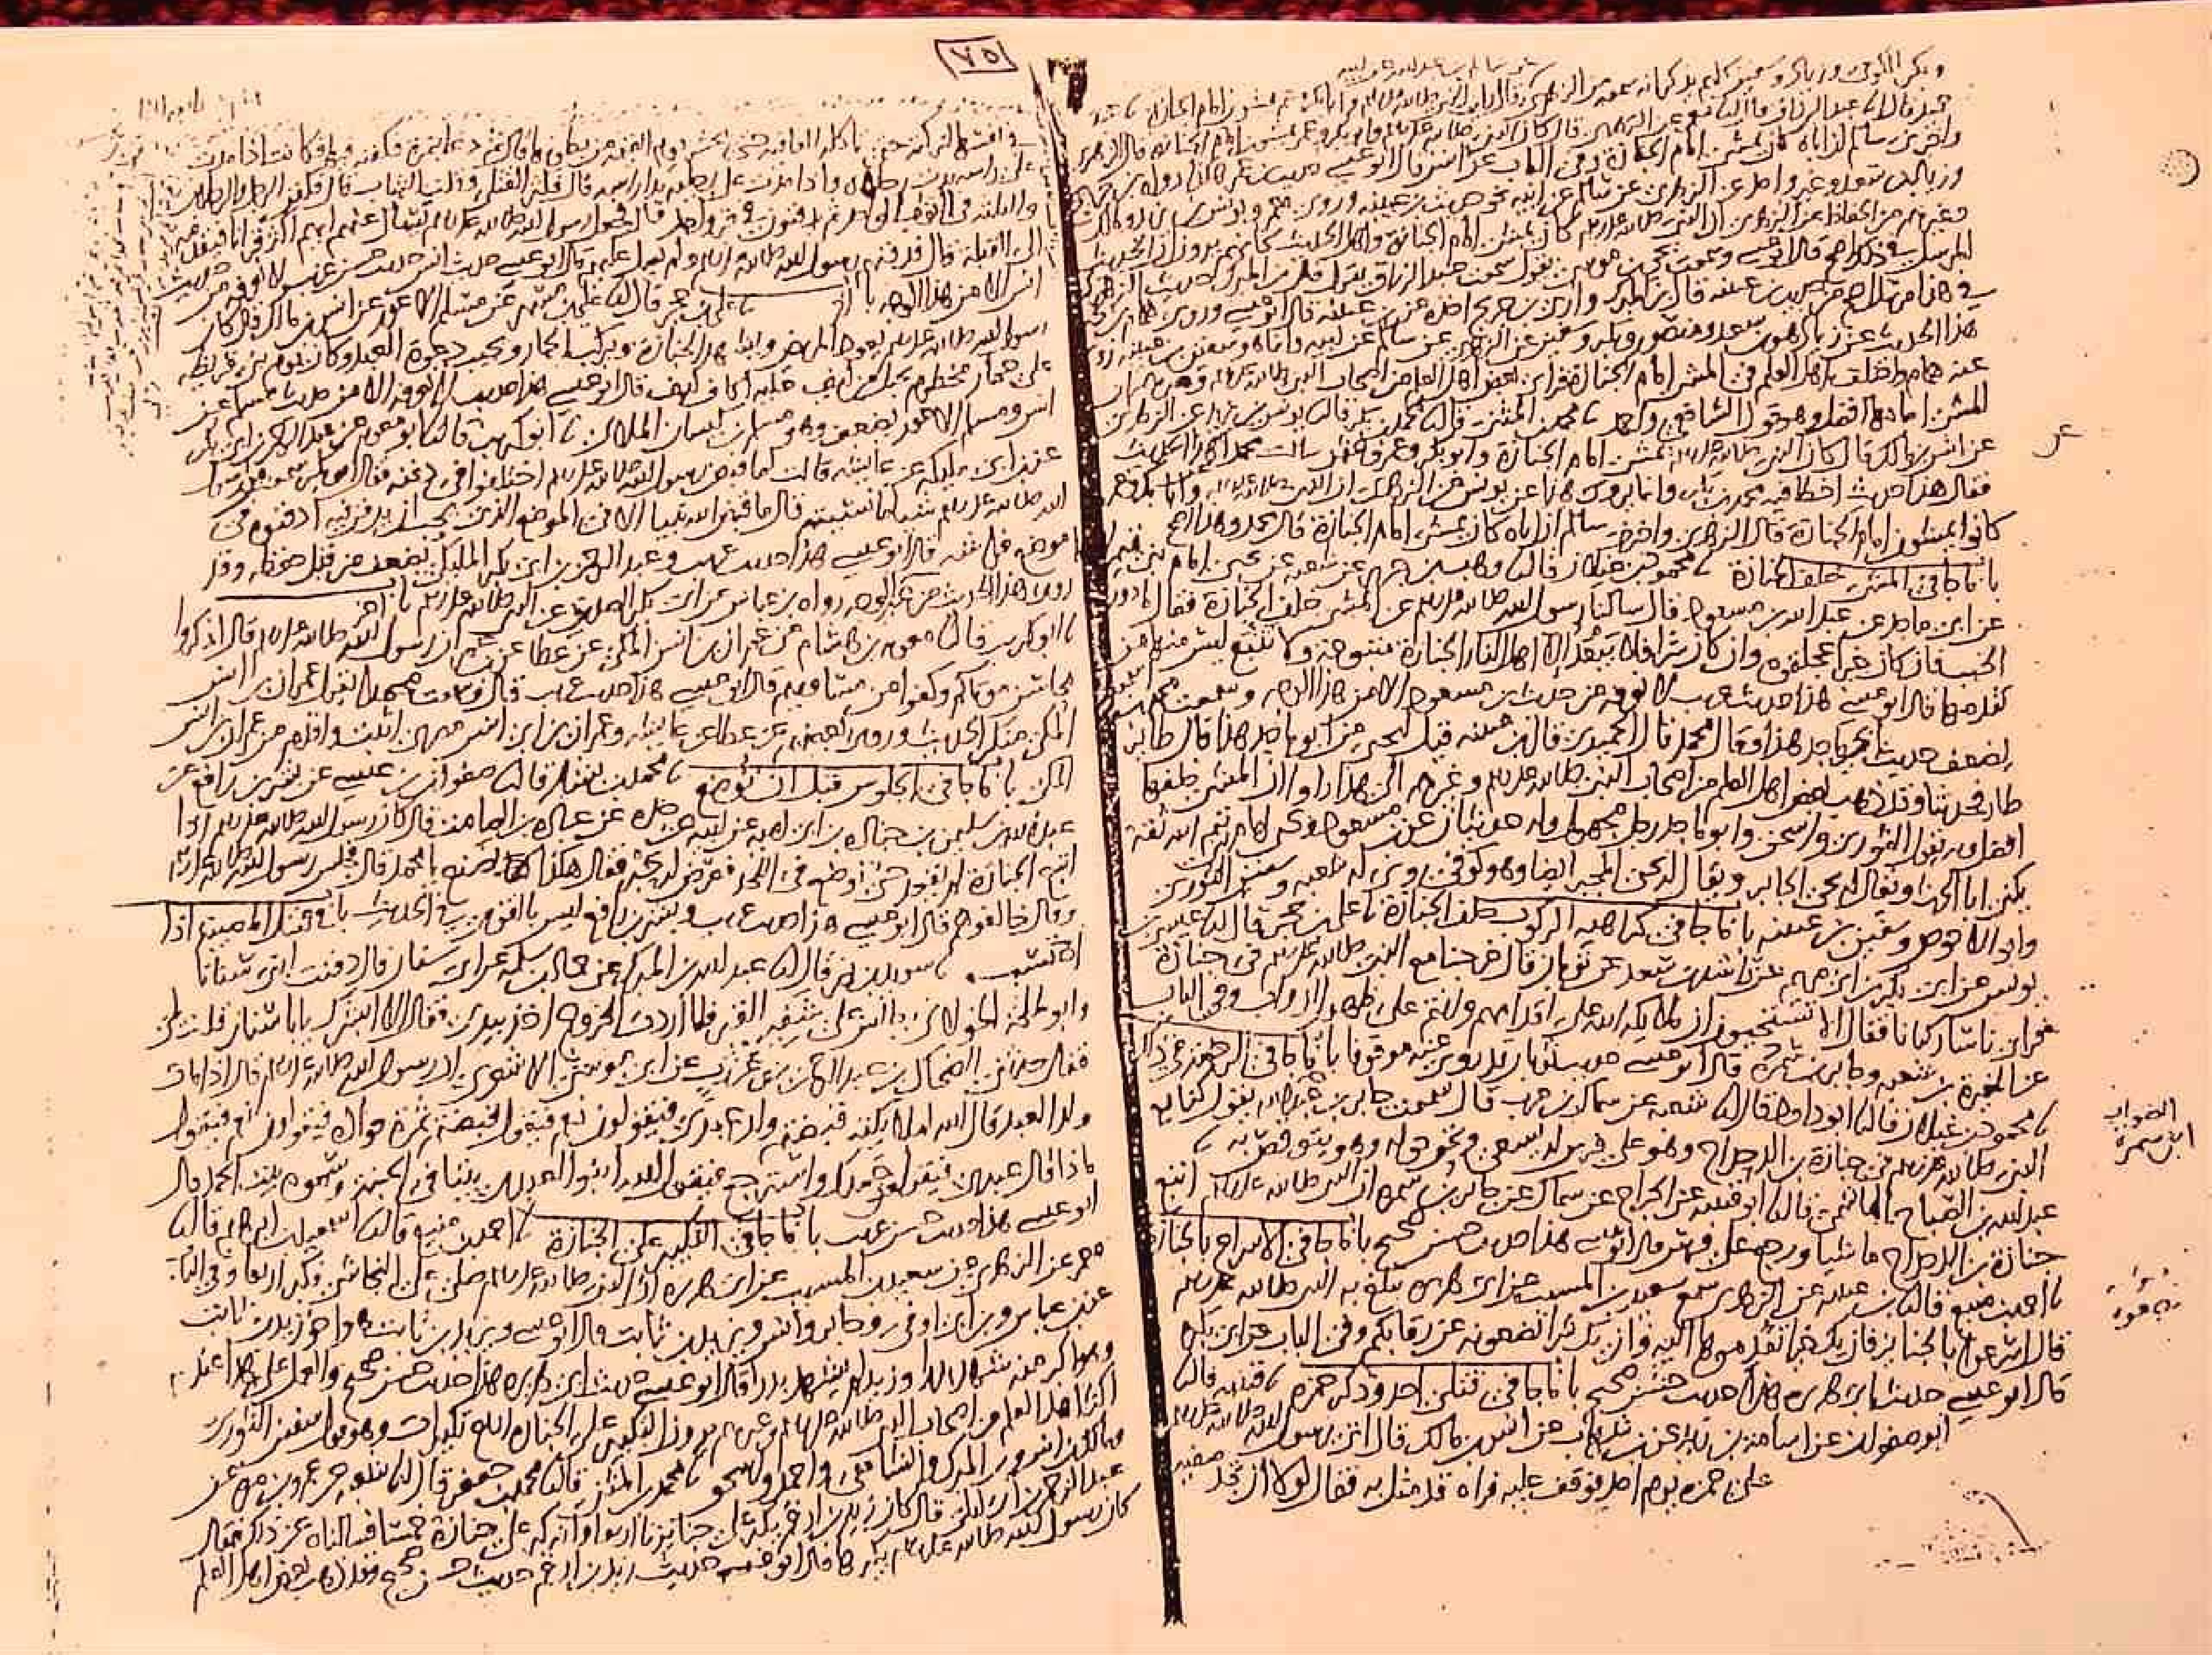 وبكر الكوفي وزياد وسفين كلهم يذكر انه سمعه من الزهري
حميد قال نا عبد الرزاق قال انا معمر عن الزهري قال كان النبي صلى الله عليه وسلم وابو بكر وعمر يمشون امام الجنازة قال الزهري
واخبرني سالم ان اباه كان يمشي امام الجنازة وفي الباب عن انس قال ابو عيسى حديث ابن عمر هكذا رواه ابن جريج
وزياد بن سعد وغير واحد عن الزهري عن سالم عن ابيه نحو حديث ابن عيينه وروى معمر ويونس بن يزيد ومالك
وغيرهم من الحفاظ عن الزهري ان النبي صلى الله عليه وسلم كان يمشي امام الجنازة واهل الحديث كانهم يرون ان الحديث
المرسل في ذلك اصح قال ابو عيسى وسمعت يحيى بن موسى يقول سمعت عبد الرزاق يقول قال ابن المبرك حديث الزهري
في هذا مرسل اصح من حديث ابن عيينه قال ابن المبرك وارى ابن جريج اخذه عن ابن عيينه قال ابو عيسى وروى همام بن يحيى
هذا الحديث عن زياد هو بن سعد ومنصور وبكر وسفين عن الزهري عن سالم عن ابيه وانما هو سفين بن عيينه روى
عنه همام واختلف اهل العلم في المشي امام الجنازة فراى بعض اهل العلم من اصحاب النبي صلى الله عليه وسلم وغيرهم ان
المشي امامها افضل وهو قول الشافعي واحمد نا محمد بن المثنى قال نا محمد بن بكر قال نا يونس بن يزيد عن الزهري
عن انس بن مالك قال كان النبي صلى الله عليه وسلم يمشي امام الجنازة وابو بكر وعمر وعثمن سالت محمدا عن هذا الحديث
فقال هذا حديث اخطا فيه محمد بن بكر وانما يروى هذا عن يونس عن الزهري ان النبي صلى الله عليه وسلم وابا بكر وعمر
كانوا يمشون امام الجنازة قال الزهري واخبرني سالم ان اباه كان يمشي امام الجنازة قال محمد وهذا اصح
باب ما جا في المشي خلف الجنازة نا محمود بن غيلان قال نا وهب بن جرير عن شعبه عن يحيى امام بني تيم الله
عن ابي ماجد عن عبد الله بن مسعود قال سالنا رسول الله صلى الله عليه وسلم عن المشي خلف الجنازة فقال ما دون
الخبب فان كان خيرا عجلتموه وان كان شرا فلا يبعد الا اهل النار الجنازة متبوعة ولا تتبع ليس منها من
تقدمها قال ابو عيسى هذا حديث غريب لا نعرفه من حديث ابن مسعود الا من هذا الوجه وسمعت محمد بن اسمعيل
يضعف حديث ابي ماجد هذا وقال محمد قال الحميدي قال ابن عيينه قيل ليحيى من ابو ماجد هذا قال طائر
طار فحدثنا وقد ذهب بعض اهل العلم من اصحاب النبي صلى الله عليه وسلم وغيرهم الى هذا راوا ان المشي خلفها
افضل وبه يقول الثوري واسحق وابو ماجد رجل مجهول وله حديثان عن ابن مسعود ويحيى امام بني تيم الله ثقة
يكنى ابا الحرث ويقال له يحيى الجابر ويقال له يحيى المجبر ايضا وهو كوفي روى له شعبه وسفين الثوري
وابو الاحوص وسفين بن عيينه باب ما جا في كراهيه الركوب خلف الجنازة نا علي بن حجر قال نا عيسى بن
يونس عن ابي بكر بن ابي مريم عن راشد بن سعد عن ثوبان قال خرجنا مع النبي صلى الله عليه وسلم في جنازة
فراى ناسا ركبانا فقال الا تستحيون ان ملايكه الله على اقدامهم وانتم على ظهور الدواب وفي الباب
عن المغيرة بن شعبه وجابر بن سمرة قال ابو عيسى حديث ثوبان قد روي عنه موقوفا باب ما جا في الرخصه في ذلك
نا محمود بن غيلان قال نا ابو داود قال نا شعبه عن سماك بن حرب قال سمعت جابر بن سمره يقول كنا مع
النبي صلى الله عليه وسلم في جنازة بن الدحداح وهو على فرس له يسعى ونحن حوله وهو يتوقص به نا
عبد الله بن الصباح الهاشمي قال نا ابو قتيبه عن الجراح عن سماك عن جابر بن سمره ان النبي صلى الله عليه وسلم اتبع
جنازة بن الدحداح ماشيا ورجع على فرس قال ابو عيسى هذا حديث حسن صحيح باب ما جا في الاسراع بالجنازة
نا احمد بن منيع قال نا بن عيينه عن الزهري سمع سعيد بن المسيب عن ابي هريره يبلغ به النبي صلى الله عليه وسلم
قال اسرعوا بالجنازة فان يك خيرا تقدموها اليه وان يك شرا تضعونه عن رقابكم وفي الباب عن ابي بكره
قال ابو عيسى حديث ابي هريره هذا حديث حسن صحيح باب ما جا في قتلى احد وذكر حمزه نا قتيبه قال نا
ابو صفوان عن اسامة بن زيد عن بن شهاب عن انس بن مالك قال اتى رسول الله صلى الله عليه وسلم
على حمزه يوم احد فوقف عليه فراه قد مثل به فقال لولا ان تجد صفيه
عن
الصواب
ابن سمرة
٧٥
في نفسها لتركته حتى تاكله العافيه حتى يحشر يوم القيمه من بطونها قال ثم دعا بنمرة فكفنه فيها فكانت اذا مدت
على راسه بدت رجلاه واذا مدت على رجليه بدا راسه قال فكثر القتلى وقلت الثياب قال فكفن الرجل والرجلان
والثلثة في الثوب الواحد ثم يدفنون في قبر واحد قال فجعل رسول الله صلى الله عليه وسلم يسال عنهم ايهم اكثر قرانا فيقدمه
الى القبلة قال فدفنهم رسول الله صلى الله عليه وسلم ولم يصل عليهم قال ابو عيسى حديث انس حديث حسن غريب لا نعرفه من حديث
انس الا من هذا الوجه باب اخر نا علي بن حجر قال نا علي بن مسهر عن مسلم الاعور عن انس بن مالك قال كان
رسول الله صلى الله عليه وسلم يعود المريض ويشهد الجنازة ويركب الحمار ويجيب دعوة العبد وكان يوم بني قريظه
على حمار مخطوم بحبل من ليف عليه اكاف ليف قال ابو عيسى هذا حديث لا نعرفه الا من حديث مسلم عن
انس ومسلم الاعور يضعف وهو مسلم بن كيسان الملائي نا ابو كريب قال نا ابو معويه عن عبد الرحمن بن ابي بكر
عن ابن ابي مليكه عن عايشه قالت لما قبض رسول الله صلى الله عليه وسلم اختلفوا في دفنه فقال ابو بكر سمعت من رسول
الله صلى الله عليه وسلم شيا ما نسيته قال ما قبض الله نبيا الا في الموضع الذي يحب ان يدفن فيه ادفنوه في
موضع فراشه قال ابو عيسى هذا حديث غريب وعبد الرحمن بن ابي بكر المليكي يضعف من قبل حفظه وقد
روي هذا الحديث من غير وجه رواه بن عباس عن ابي بكر الصديق عن النبي صلى الله عليه وسلم باب اخر
نا ابو كريب قال نا معويه بن هشام عن عمران بن انس المكي عن عطا عن بن عمر ان رسول الله صلى الله عليه وسلم قال اذكروا
محاسن موتاكم وكفوا عن مساويهم قال ابو عيسى هذا حديث غريب قال وسمعت محمدا يقول عمران بن انس
المكي منكر الحديث وروى بعضهم عن عطا عن عايشه وعمران بن ابي انس مصري اثبت واقدم من عمران بن انس
المكي باب ما جا في الجلوس قبل ان توضع نا محمد بن بشار قال نا صفوان بن عيسى عن بشر بن رافع عن
عبد الله بن سليمن بن جناده بن ابي اميه عن ابيه عن جده عن عباده بن الصامت قال كان رسول الله صلى الله عليه وسلم اذا
اتبع الجنازة لم يقعد حتى توضع في اللحد فعرض له حبر فقال هكذا نصنع يا محمد قال فجلس رسول الله صلى الله عليه وسلم
وقال خالفوهم قال ابو عيسى هذا حديث غريب وبشر بن رافع ليس بالقوي في الحديث باب فضل المصيبه اذا
احتسب نا سويد بن نصر قال نا عبد الله بن المبرك عن حماد بن سلمه عن ابي سنان قال دفنت ابني سنانا
وابو طلحه الخولاني جالس على شفير القبر فلما اردت الخروج اخذ بيدي فقال الا ابشرك يابا سنان قلت بلى
فقال حدثني الضحاك بن عبد الرحمن بن عرزب عن ابي موسى الاشعري ان رسول الله صلى الله عليه وسلم قال اذا مات
ولد العبد قال الله لملائكته قبضتم ولد عبدي فيقولون نعم فيقول قبضتم ثمرة فواده فيقولون نعم فيقول
ماذا قال عبدي فيقولون حمدك واسترجع فيقول الله ابنوا لعبدي بيتا في الجنه وسموه بيت الحمد قال
ابو عيسى هذا حديث حسن غريب باب ما جا في التكبير على الجنازة نا احمد بن منيع قال نا اسمعيل بن ابرهيم قال نا
معمر عن الزهري عن سعيد بن المسيب عن ابي هريره ان النبي صلى الله عليه وسلم صلى على النجاشي فكبر اربعا وفي الباب
عن بن عباس وبن ابي اوفى وجابر وانس ويزيد بن ثابت قال ابو عيسى ويزيد بن ثابت هو اخو زيد بن ثابت
وهو اكبر منه شهد بدرا وزيد لم يشهد بدرا قال ابو عيسى حديث ابي هريره هذا حديث حسن صحيح والعمل على هذا عند
اكثر اهل العلم من اصحاب النبي صلى الله عليه وسلم وغيرهم يرون التكبير على الجنازه اربع تكبيرات وهو قول سفين الثوري
ومالك بن انس وبن المبرك والشافعي واحمد واسحق نا محمد بن المثنى قال نا محمد بن جعفر قال نا شعبه عن عمرو بن مره عن
عبد الرحمن بن ابي ليلى قال كان زيد بن ارقم يكبر على جنايزنا اربعا وانه كبر على جنازة خمسا فسالناه عن ذلك فقال
كان رسول الله صلى الله عليه وسلم يكبرها قال ابو عيسى حديث زيد بن ارقم حديث حسن صحيح وقد ذهب بعض اهل العلم